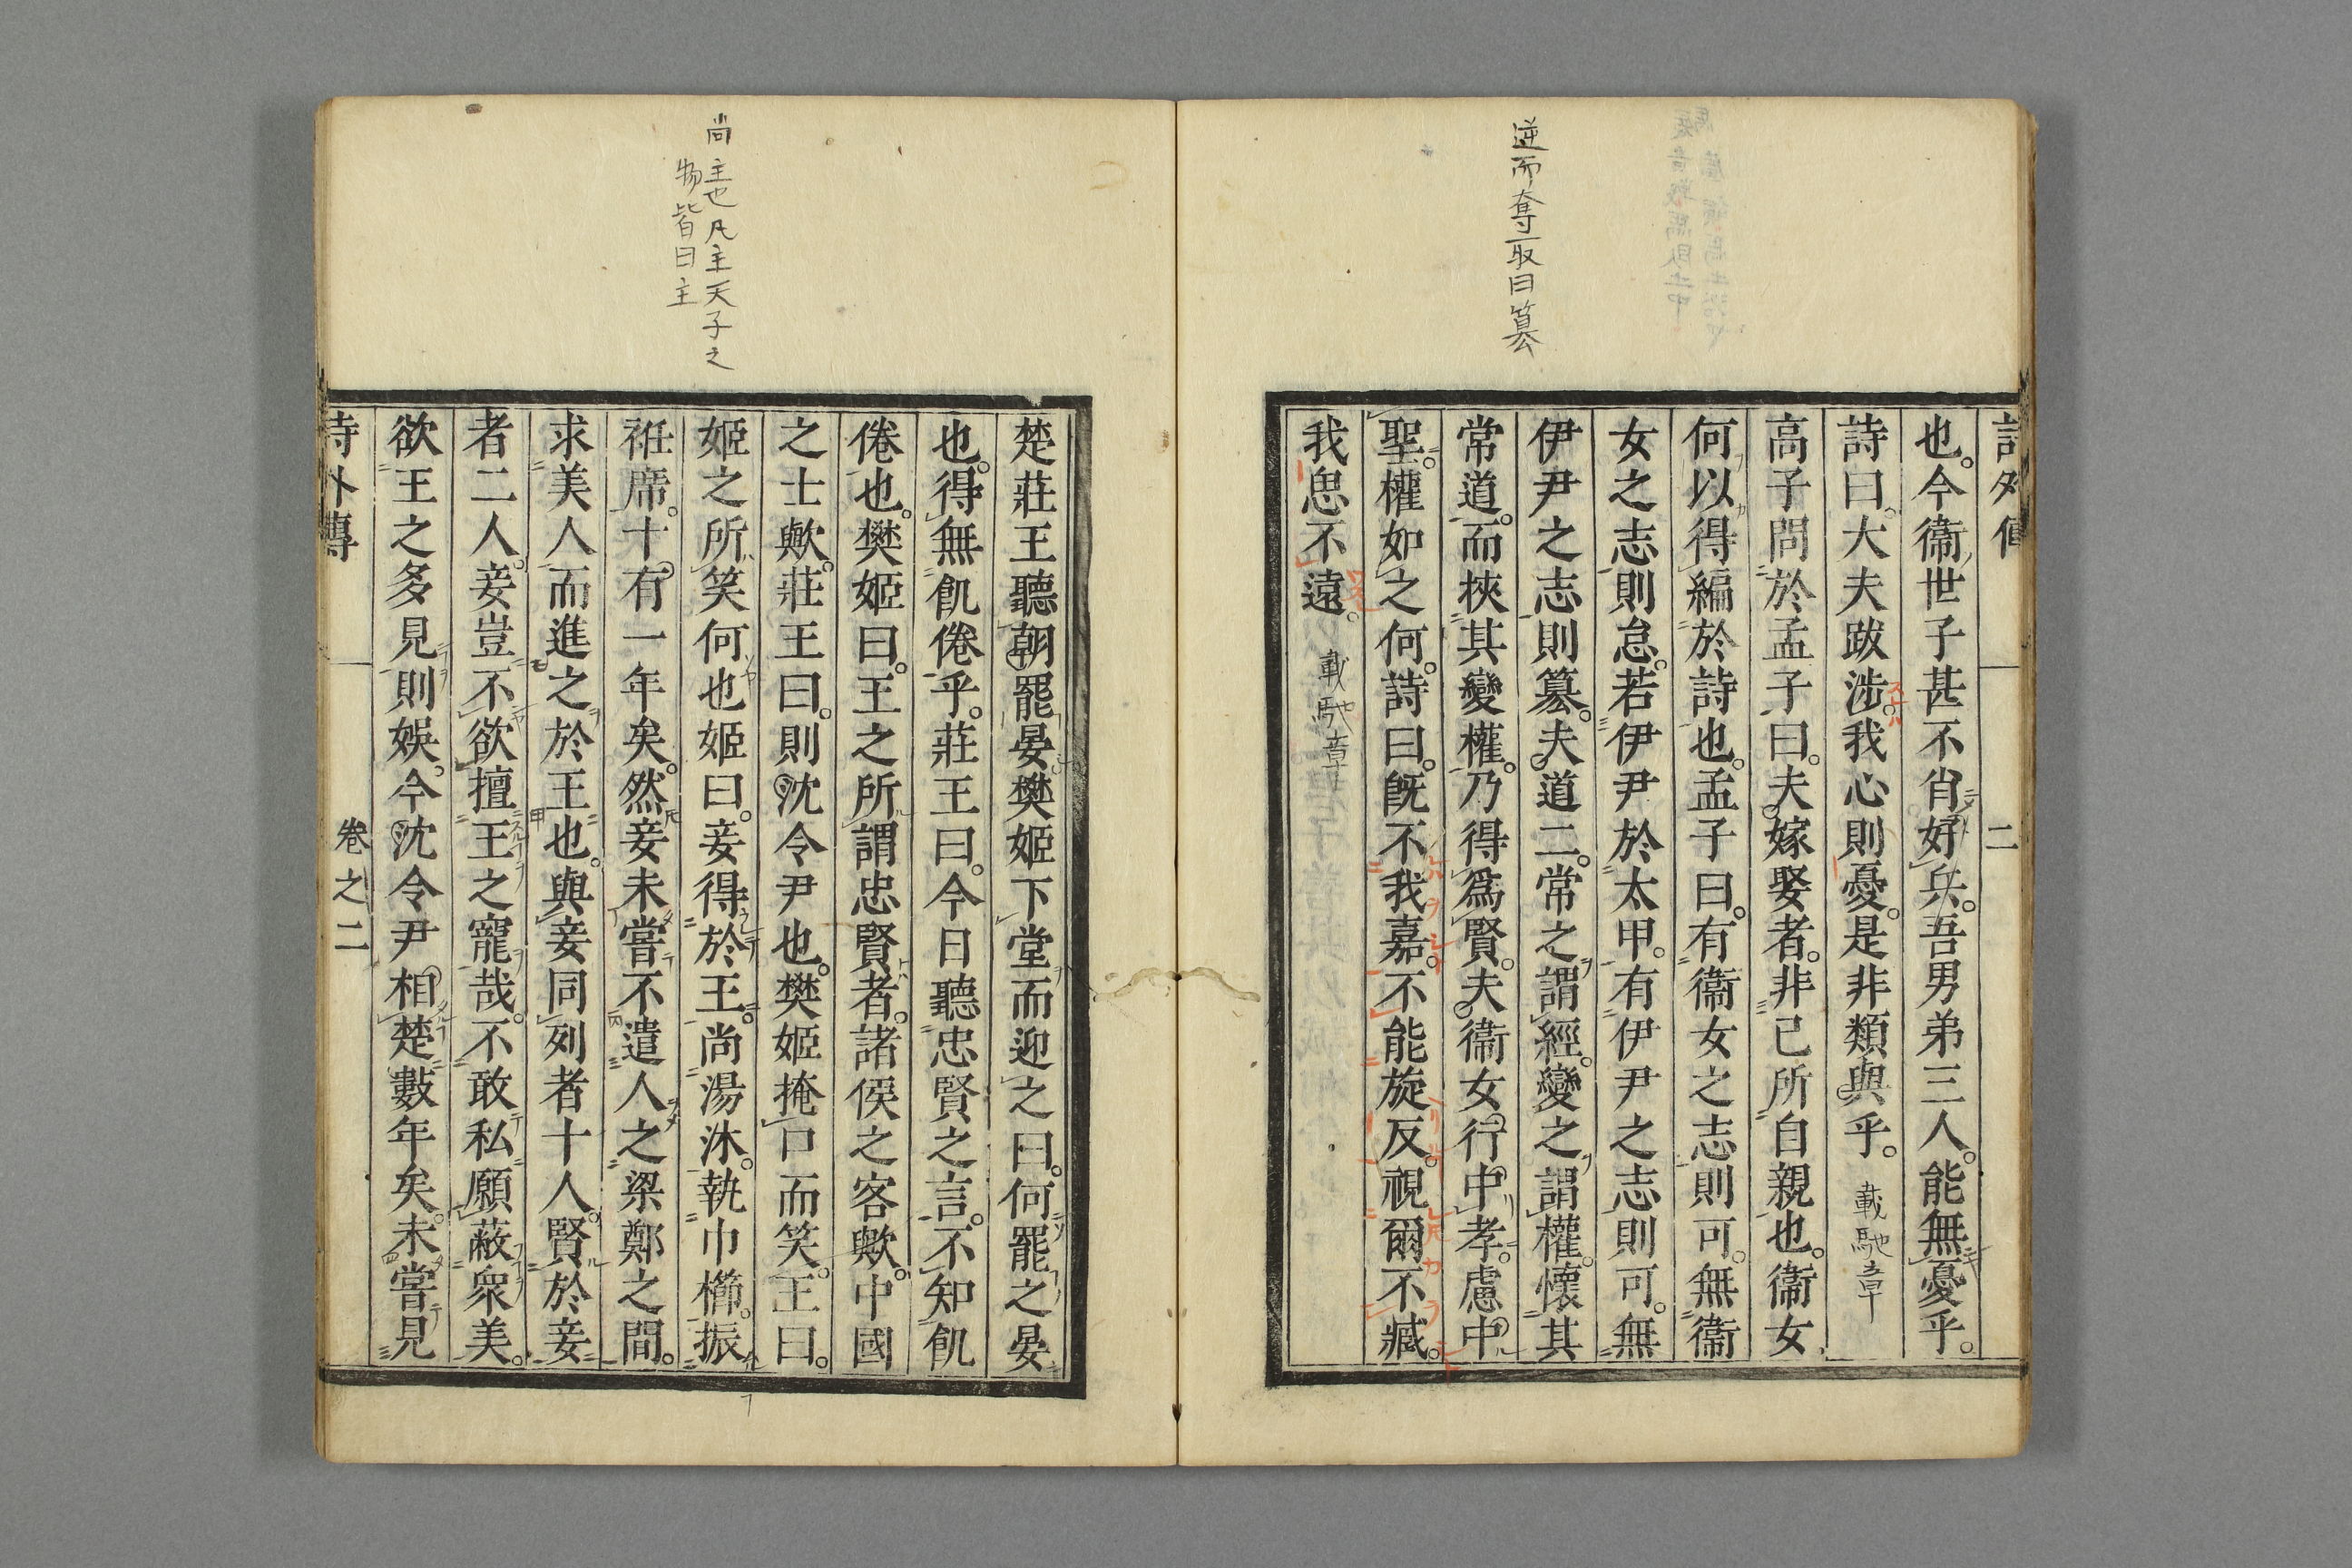 逆而奪取曰篡
二
也。今衞世子甚不肖好兵。吾男弟三人。能無憂乎。
詩曰。大夫跋涉。我心則憂。是非類與乎。載馳章
高子問於孟子曰。夫嫁娶者。非己所自親也。衞女
何以得編於詩也。孟子曰。有衞女之志則可。無衞
女之志則怠。若伊尹於太甲。有伊尹之志則可。無
伊尹之志則篡。夫道二。常之謂經。變之謂權。懷其
常道。而挾其變權。乃得爲賢。夫衞女行中孝。慮中
聖。權如之何。詩曰。旣不我嘉。不能旋反。視爾不臧。
我思不遠。載馳章
尚主也凡主天子之
物皆曰主
楚莊王聽朝罷晏。樊姬下堂而迎之曰。何罷之晏
也。得無飢倦乎。莊王曰。今日聽忠賢之言。不知飢
倦也。樊姬曰。王之所謂忠賢者。諸侯之客歟。中國
之士歟。莊王曰。則沈令尹也。樊姬掩口而笑。王曰。
姬之所笑何也姬曰。妾得於王。尚湯沐。執巾櫛。振
衽席。十有一年矣。然妾未嘗不遣人之梁鄭之間。
求美人而進之於王也。與妾同列者十人。賢於妾
者二人。妾豈不欲擅王之寵哉。不敢私願蔽衆美。
欲王之多見則娛。今沈令尹相楚數年矣。未嘗見
詩外傳 卷之二